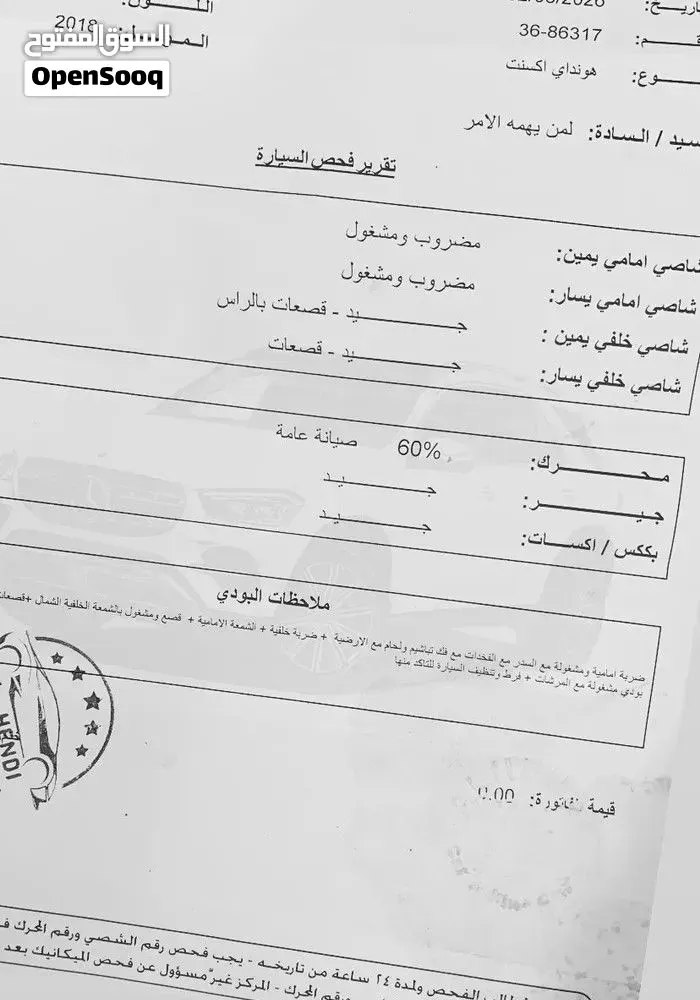 اللـــون:
السوق المفتوح
OpenSooq
2018
36-86317
هونداي اكسنت
السادة: لمن يهمه الامر
تقرير فحص السيارة
شاصي امامي يمين: مضروب ومشغول
شاصي امامي يسار: مضروب ومشغول
شاصي خلفي يمين : جـــــيد - قصعات بالراس
شاصي خلفي يسار: جـــــيد - قصعات
محــــــرك: 60% صيانة عامة
جيــــــر: جـــــيد
بككس / اكسات: جـــــيد
ملاحظات البودي
ضربة امامية ومشغولة مع السدر مع الفخدات مع فك تباشيم ولحام مع الارضية + ضربة خلفية + الشمعة الامامية + قصع ومشغول بالشمعة الخلفية الشمال +قصعات
بودي مشغولة مع المرشات + فرط وتنظيف السيارة للتاكد منها
HENDI
قيمة
0.00
الفحص ولمدة ٢٤ ساعة من تاريخه - يجب فحص رقم الشصي ورقم المحرك
ورقم المحرك - المركز غير مسؤول عن فحص الميكانيك بعد